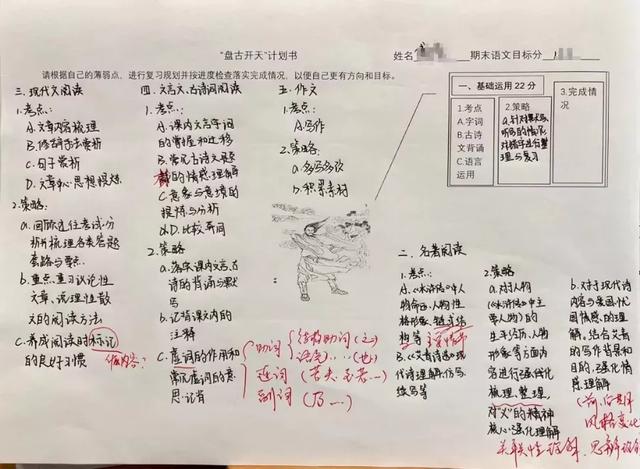 "盘古开天"计划书
姓名
期末语文目标分
请根据自己的薄弱点，进行复习规划并按进度检查落实完成情况，以便自己更有方向和目标。
三.现代文阅读
1.考点:
A.文章内容梳理
B.修辞手法赏析
C.句子赏析
D.文章中心思想提炼
2.策略:
a.回顾过往考试,分
析并梳理各类答题
套路与要点
b.重点复习议论性
文章、说理性散
文的阅读方法
C.养成阅读时标记
的良好习惯
做内容?
四.文言文、古诗词阅读
1.考点:
A.课内文言字词
的掌握和迁移
B.常见古诗文题
的情感理解
C.意象与意境的
提炼与分析
D.比较异同
2.策略
a.落实课内文言、古
诗的背诵与默
写
b.记背课文内的
注释
C.虚词的作用和
常见虚词的意
思记背
助词
结构助词(之)
语气
(也)
连词
副词
(乃…)
五.作文
1.考点:
A.写作
2.策略:
a.多写多改
b.积累素材
一、基础运用 22 分
1.考点
A.字词
B.古诗
文背诵
C.语言
运用
2.策略
a.针对默写、
听写的情况,
对错字进行整
理与复习
3.完成情
况
二.名著阅读
1.考点:
A.《水浒传》中人
物命运、人物性
格形象、链式结
构等
B.《艾青诗选》现
代诗理解、仿写、
续写等
2.策略
a.对人物
《水浒传》中主
要人物)的
生平经历、人物
形象等方面内
容进行强化化
梳理、整理,
对"义"的精神
核心强化理解
b.对于现代诗
内容与爱国、忧
国情感的理
解。结合艾青
的写作背景和
目的,强化情
感理解
(前、后期
风格变化
关联性理解、思辨